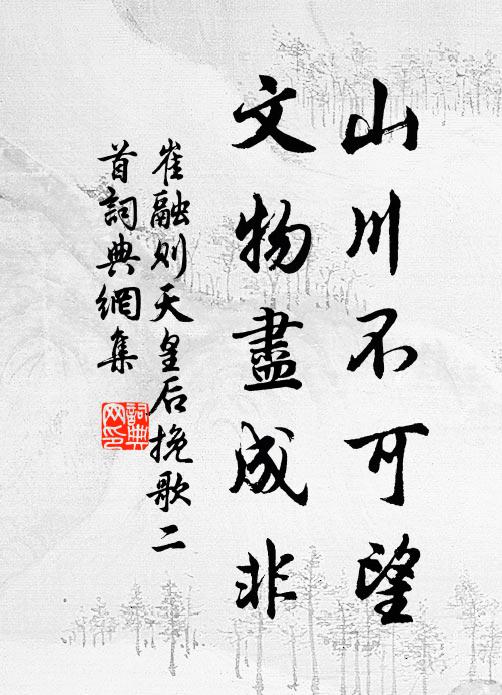 山川不可望
文物盡成非
崔融則天皇后挽歌二
首詞典網集
詞典
网印